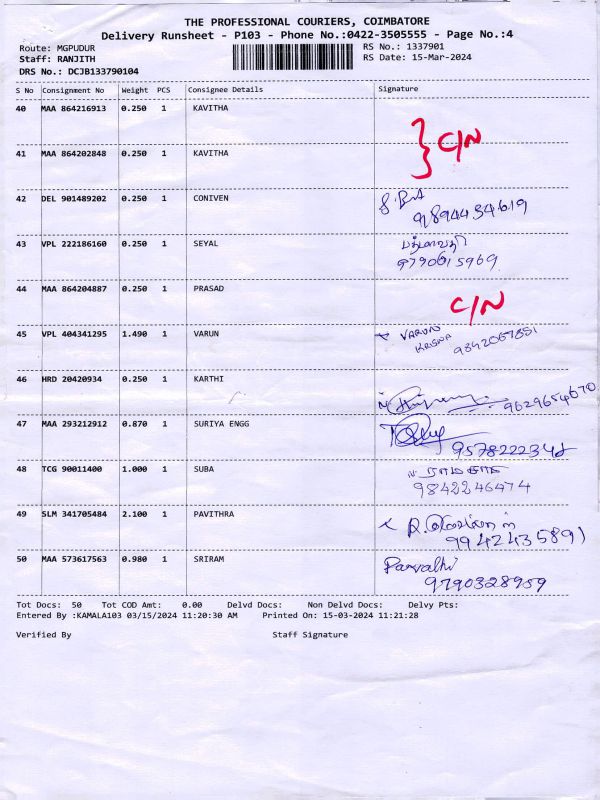 THE PROFESSIONAL COURIERS, COIMBATORE
Delivery Runsheet - P103 - Phone No.:0422-3505555 - Page No.:4
Route: MGPUDUR RS No.: 1337901
Staff: RANJITH RS Date: 15-Mar-2024
DRS No.: DCJB133790104
S No Consignment No Weight PCS Consignee Details Signature
40 MAA 864216913 0.250 1 KAVITHA
} C/N
41 MAA 864202848 0.250 1 KAVITHA
42 DEL 901489202 0.250 1 CONIVEN
9894434619
43 VPL 222186160 0.250 1 SEYAL
9790615969
44 MAA 864204887 0.250 1 PRASAD
C/N
45 VPL 404341295 1.490 1 VARUN VARUN
KRISNA 9842067851
46 HRD 20420934 0.250 1 KARTHI
9629654670
47 MAA 293212912 0.870 1 SURIYA ENGG
48 TCG 90011400 1.000 1 SUBA
9842246474
49 SLM 341705484 2.100 1 PAVITHRA
9942435891
50 MAA 573617563 0.980 1 SRIRAM Parvathi
9790328959
Tot Docs: 50 Tot COD Amt: 0.00 Delvd Docs: Non Delvd Docs: Delvy Pts:
Entered By :KAMALA103 03/15/2024 11:20:30 AM Printed On: 15-03-2024 11:21:28
Verified By Staff Signature